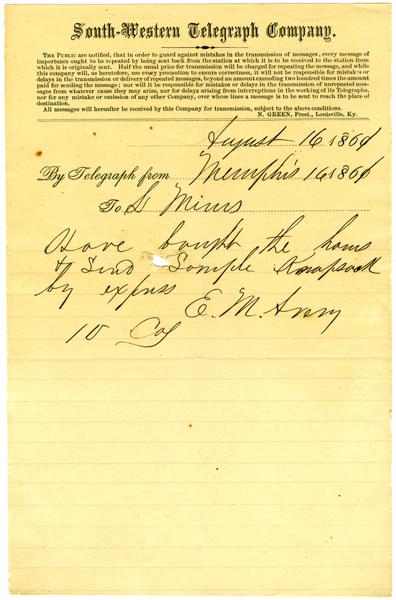 South-Western Telegraph Company.
THE PUBLIC are notified, that in order to guard against mistakes in the transmission of messages, every message of
importance ought to be repeated by being sent back from the station at which it is to be received to the station from
which it is originally sent. Half the usual price for transmission will be charged for repeating the message, and while
this company will, as heretofore, use every precaution to ensure correctness, it will not be responsible for mistakes or
delays in the transmission or delivery of repeated messages, beyond an amount exceeding two hundred times the amount
paid for sending the message; nor will it be responsible for mistakes or delays in the transmission of unrepeated mes-
sages from whatever cause they may arise, nor for delays arising from interruptions in the working of its Telegraphs,
nor for any mistake or omission of any other Company, over whose lines a message is to be sent to reach the place of
destination.
All messages will hereafter be received by this Company for transmission, subject to the above conditions.
N. GREEN, Prest., Louisville, Ky.
August 16 1860
By Telegraph from Memphis 16 1860
To L Mims
Have bought the horns
& Send Sample Knapsack
by express
E. M. Avery
10 Col